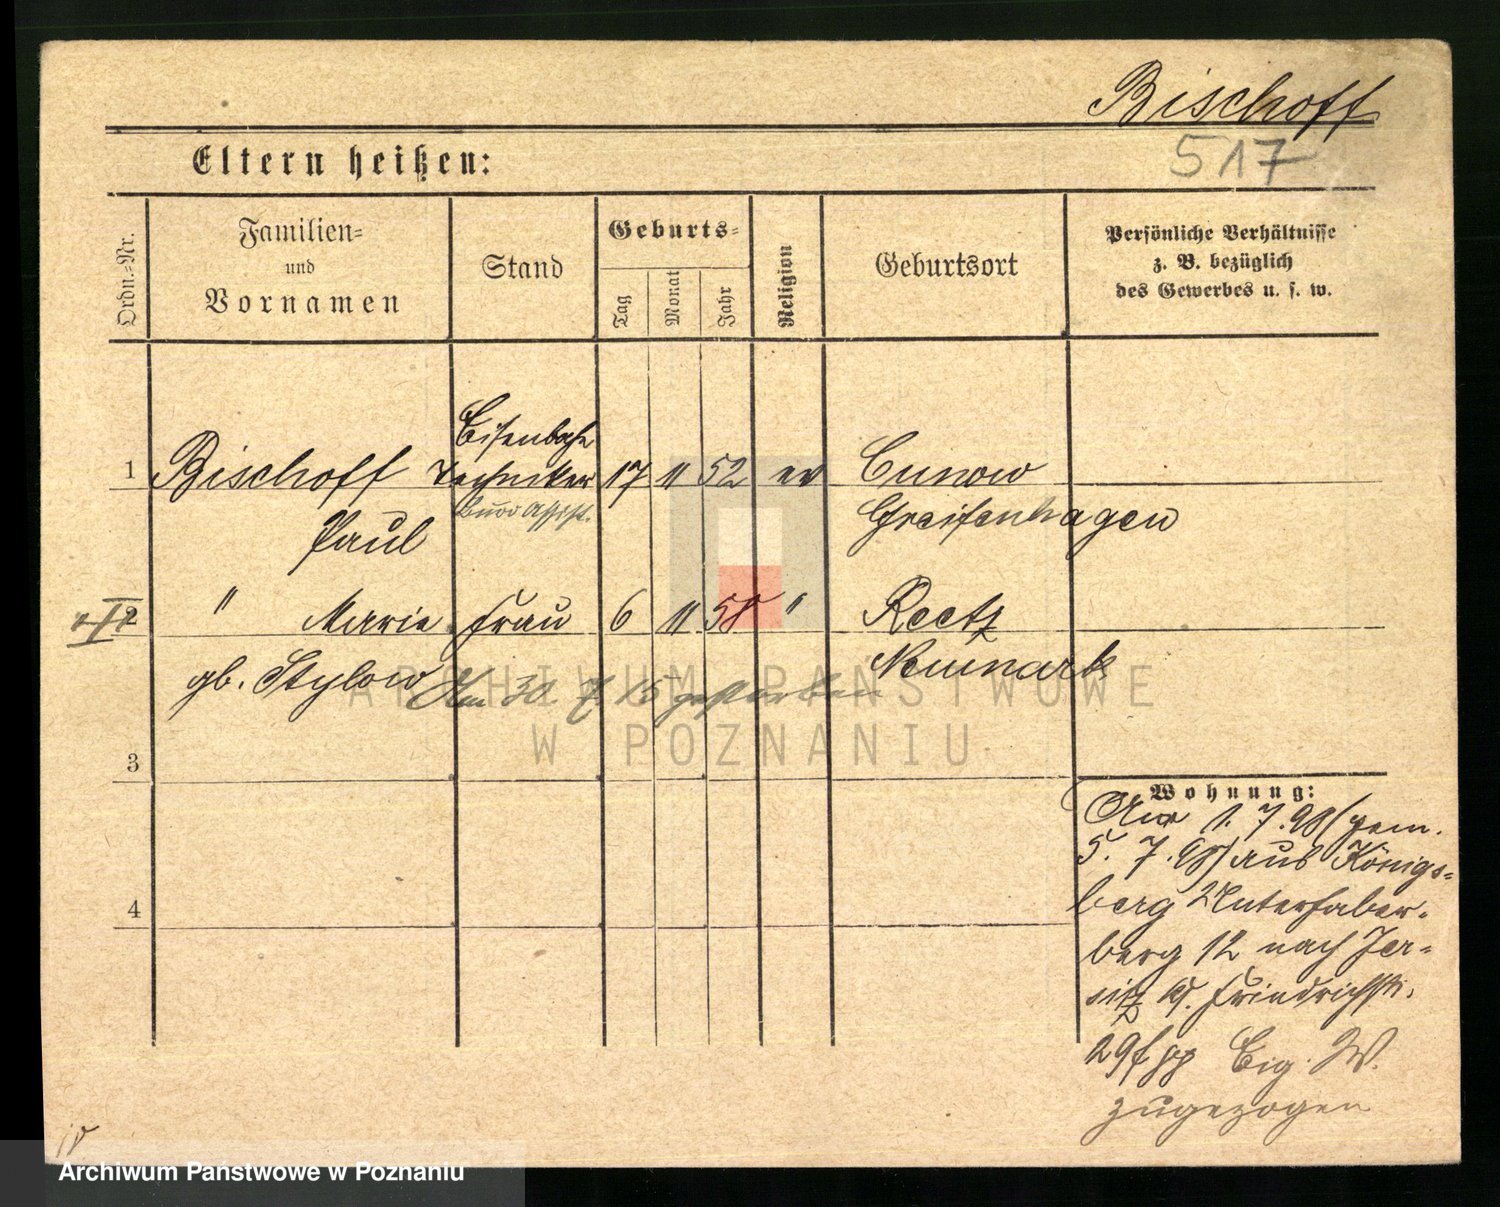 Bischoff
517
Eltern heißen:
Ordn.-Nr.
Familien-
und
Vornamen
Stand
Geburts-
Tag
Monat
Jahr
Religion
Geburtsort
Persönliche Verhältnisse
z. B. bezüglich
des Gewerbes u. s. w.
Eisenbahn
1 Bischoff Techniker 17 11 52 ev Cunow
Büro Assist. Greifenhagen
Paul
2 " Marie Frau 6 11 58 " Reetz
Neumark
gb. Stylow Am 30. 7. 15 gestorben
ARCHIWUM PAŃSTWOWE
W POZNANIU
3
Wohnung:
Am 1. 7. 98 (gem.
5. 7. 98) aus Königs-
berg Unterhaber-
4
berg 12 nach Jer-
sitz Friedrichstr.
29 Eig. W.
zugezogen
Archiwum Państwowe w Poznaniu